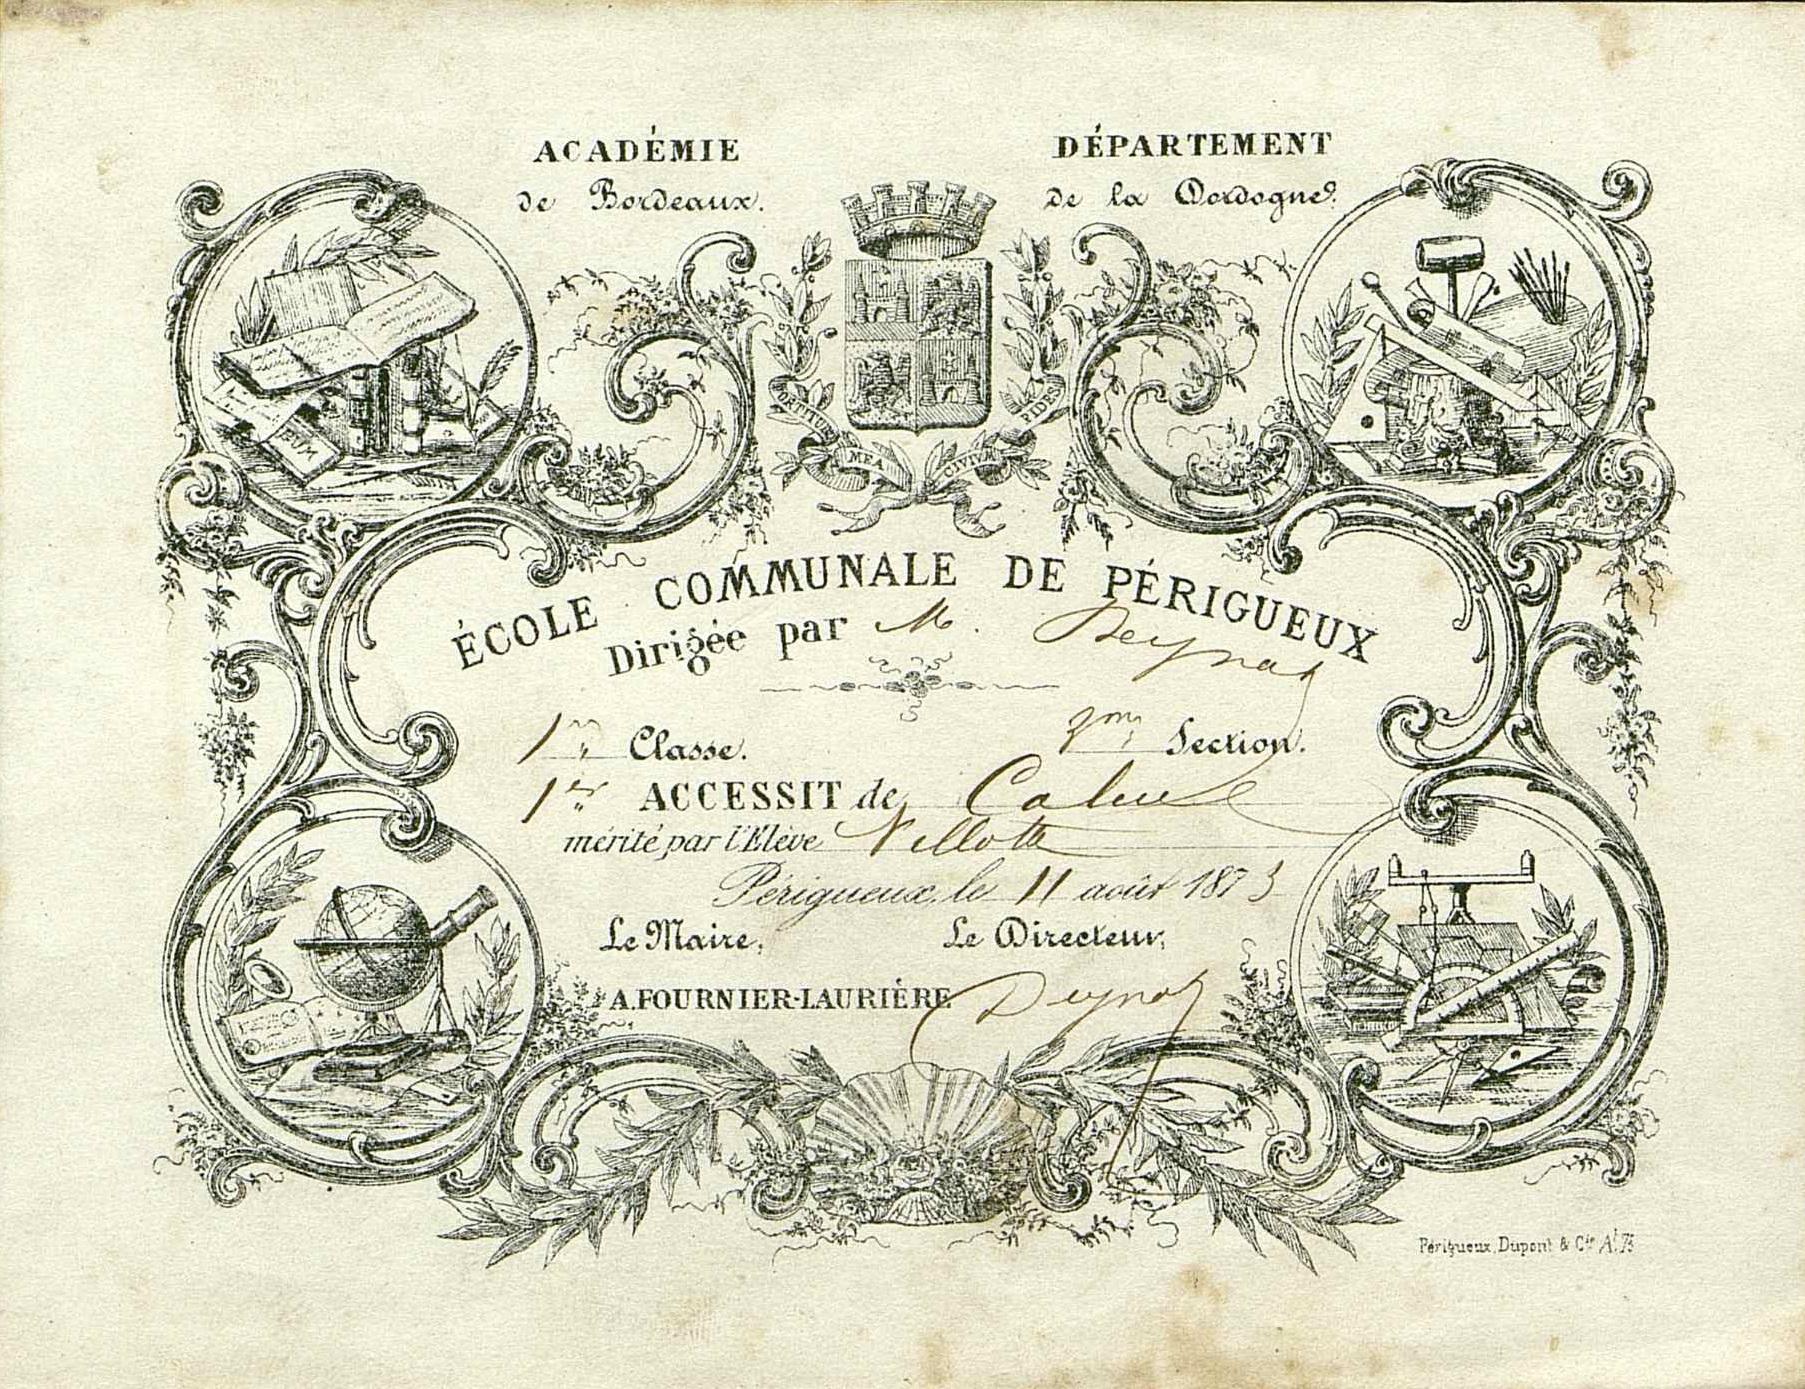 ACADÉMIE
de Bordeaux.
DÉPARTEMENT
de la Dordogne.
FORTITUDO MEA CIVIUM FIDES
ÉCOLE COMMUNALE DE PÉRIGUEUX
Dirigée par M. Deynat
1re Classe. 2me Section.
1er ACCESSIT de Calcul
mérité par l'Elève Villotte
Périgueux, le 11 août 1873
Le Maire, Le Directeur,
A. FOURNIER-LAURIÈRE Deynat
Périgueux, Dupont & Cie At. 73